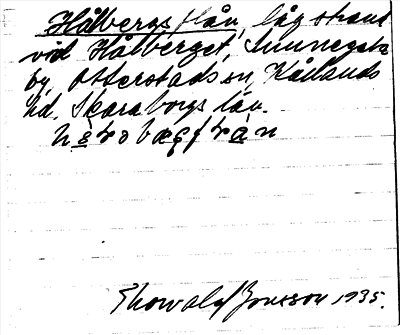 Hålbergs flån, låg strand
vid Hålberget, Sunnegets
by, Otterstads sn, Kållands
hd, Skaraborgs län.
Thorvald Jonsson 1935.